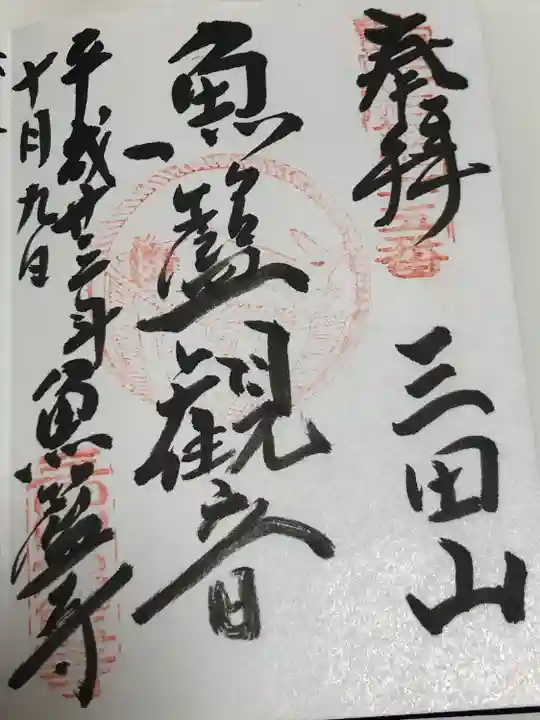 奉拝 三田山
魚籃観音
平成廿三年 魚籃寺
十月九日